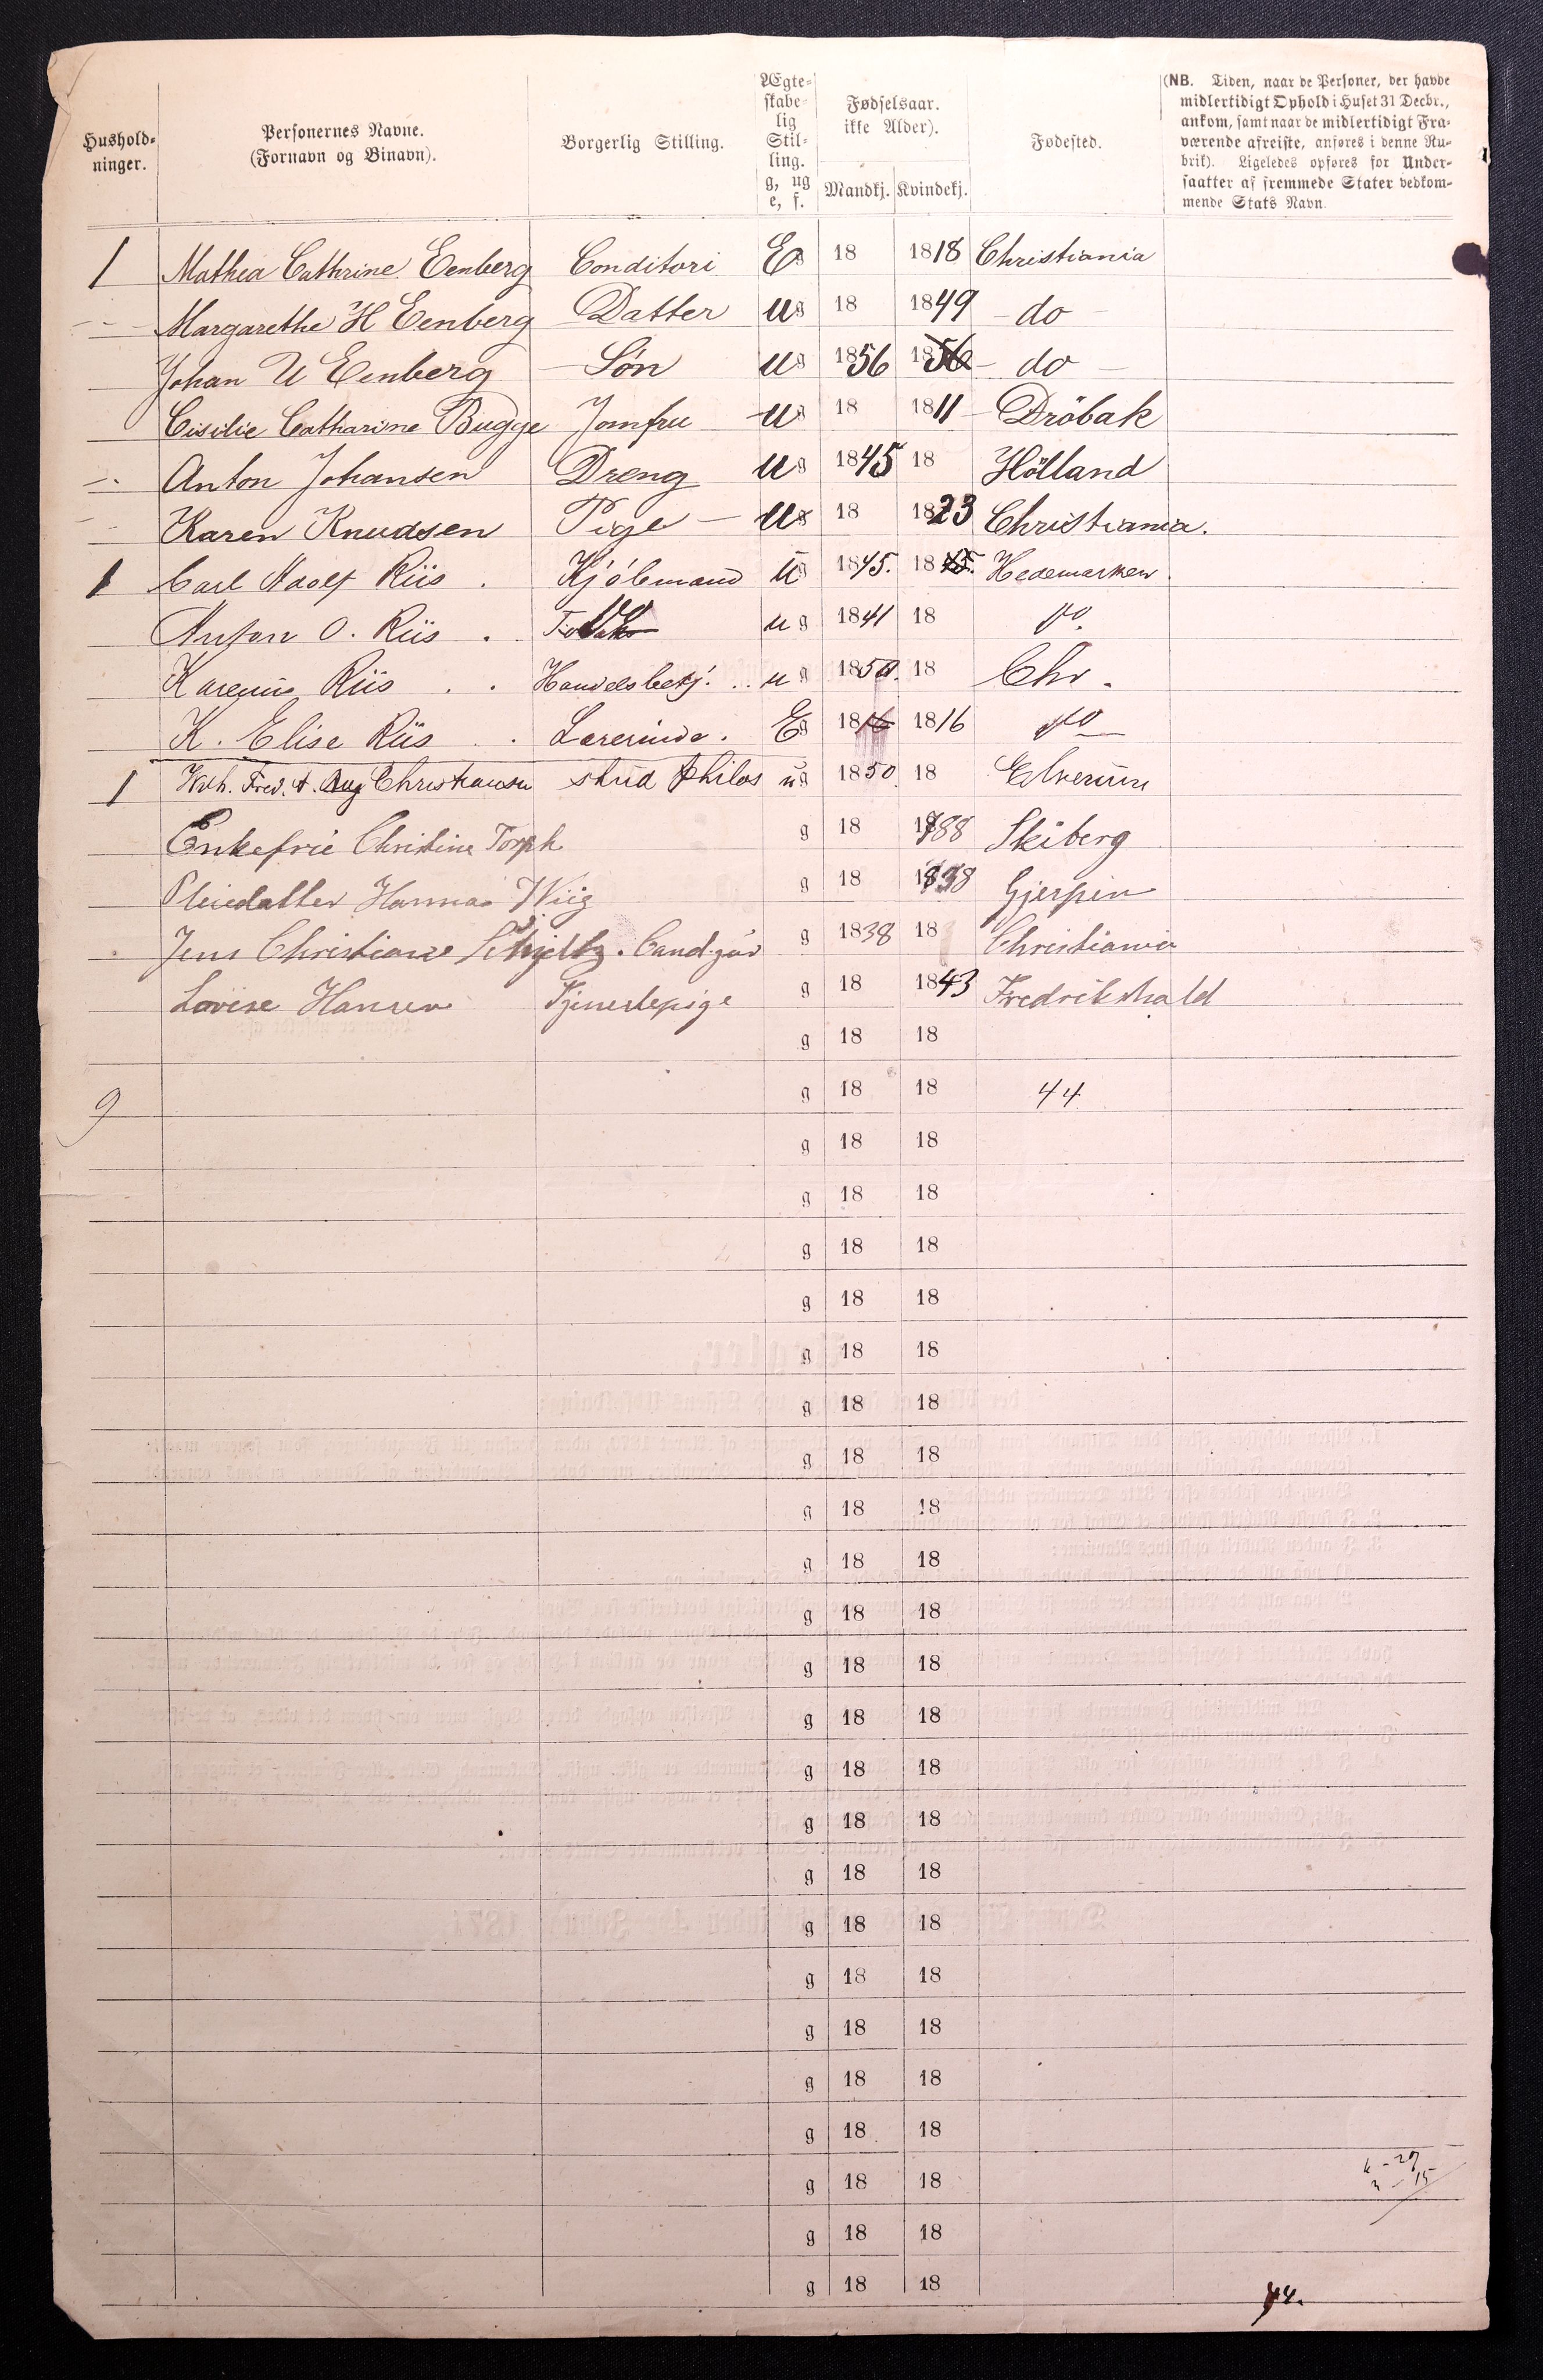 Hushold-
ninger.
Personernes Navne.
(Fornavn og Binavn).
Borgerlig Stilling.
Ægte-
skabe-
lig
Stil-
ling.
g, ug
e, f.
Fødselsaar.
ikke Alder).
Mandkj. Kvindekj.
Fødested.
(NB. Tiden, naar de Personer, der havde
midlertidigt Ophold i Huset 31 Decbr.,
ankom, samt naar de midlertidigt Fra-
værende afreiste, anføres i denne Ru-
brik). Ligeledes opføres for Under-
saatter af fremmede Stater vedkom-
mende Stats Navn.
1 Mathea Cathrine Eenberg Conditori E g 18 1818 Christiania
Margarethe H Eenberg Datter u g 18 1849 do
Johan U Eenberg Søn u g 1856 1856 do
Cisilie Catharine Bugge Jomfru u g 18 1811 Dröbak
Anton Johansen Dreng u g 1845 18 Hölland
Karen Knudsen Pige u g 18 1823 Christiania.
1 Carl Adolf Riis . Kjøbmand u g 1845. 1845. Hedemarken.
Anton O. Riis . do u g 1841 18 do.
Karenus Riis . . Handelsbetj. .. u g 1850. 18 Chr.
K. Elise Riis . . Lærerinde. E g 1816 1816 do
1 Fred. A. Aug Christiansen stud philos u g 1850 18 Elverum
Enkefrue Christine Torph g 18 1788 Skiberg
Pleiedatter Hanna Wiig g 18 1838 Gjerpen
Jens Christian Schjeltz. Cand. jur g 1838 18 Christiania
Lovise Hansen Tjenestepige g 18 1843 Fredrikshald
g 18 18
9 g 18 18 44
g 18 18
g 18 18
g 18 18
g 18 18
g 18 18
g 18 18
g 18 18
g 18 18
g 18 18
g 18 18
g 18 18
g 18 18
g 18 18
g 18 18
g 18 18
g 18 18
g 18 18
g 18 18
g 18 18
g 18 18
g 18 18
k - 29
m - 15
g 18 18
g 18 18
44.